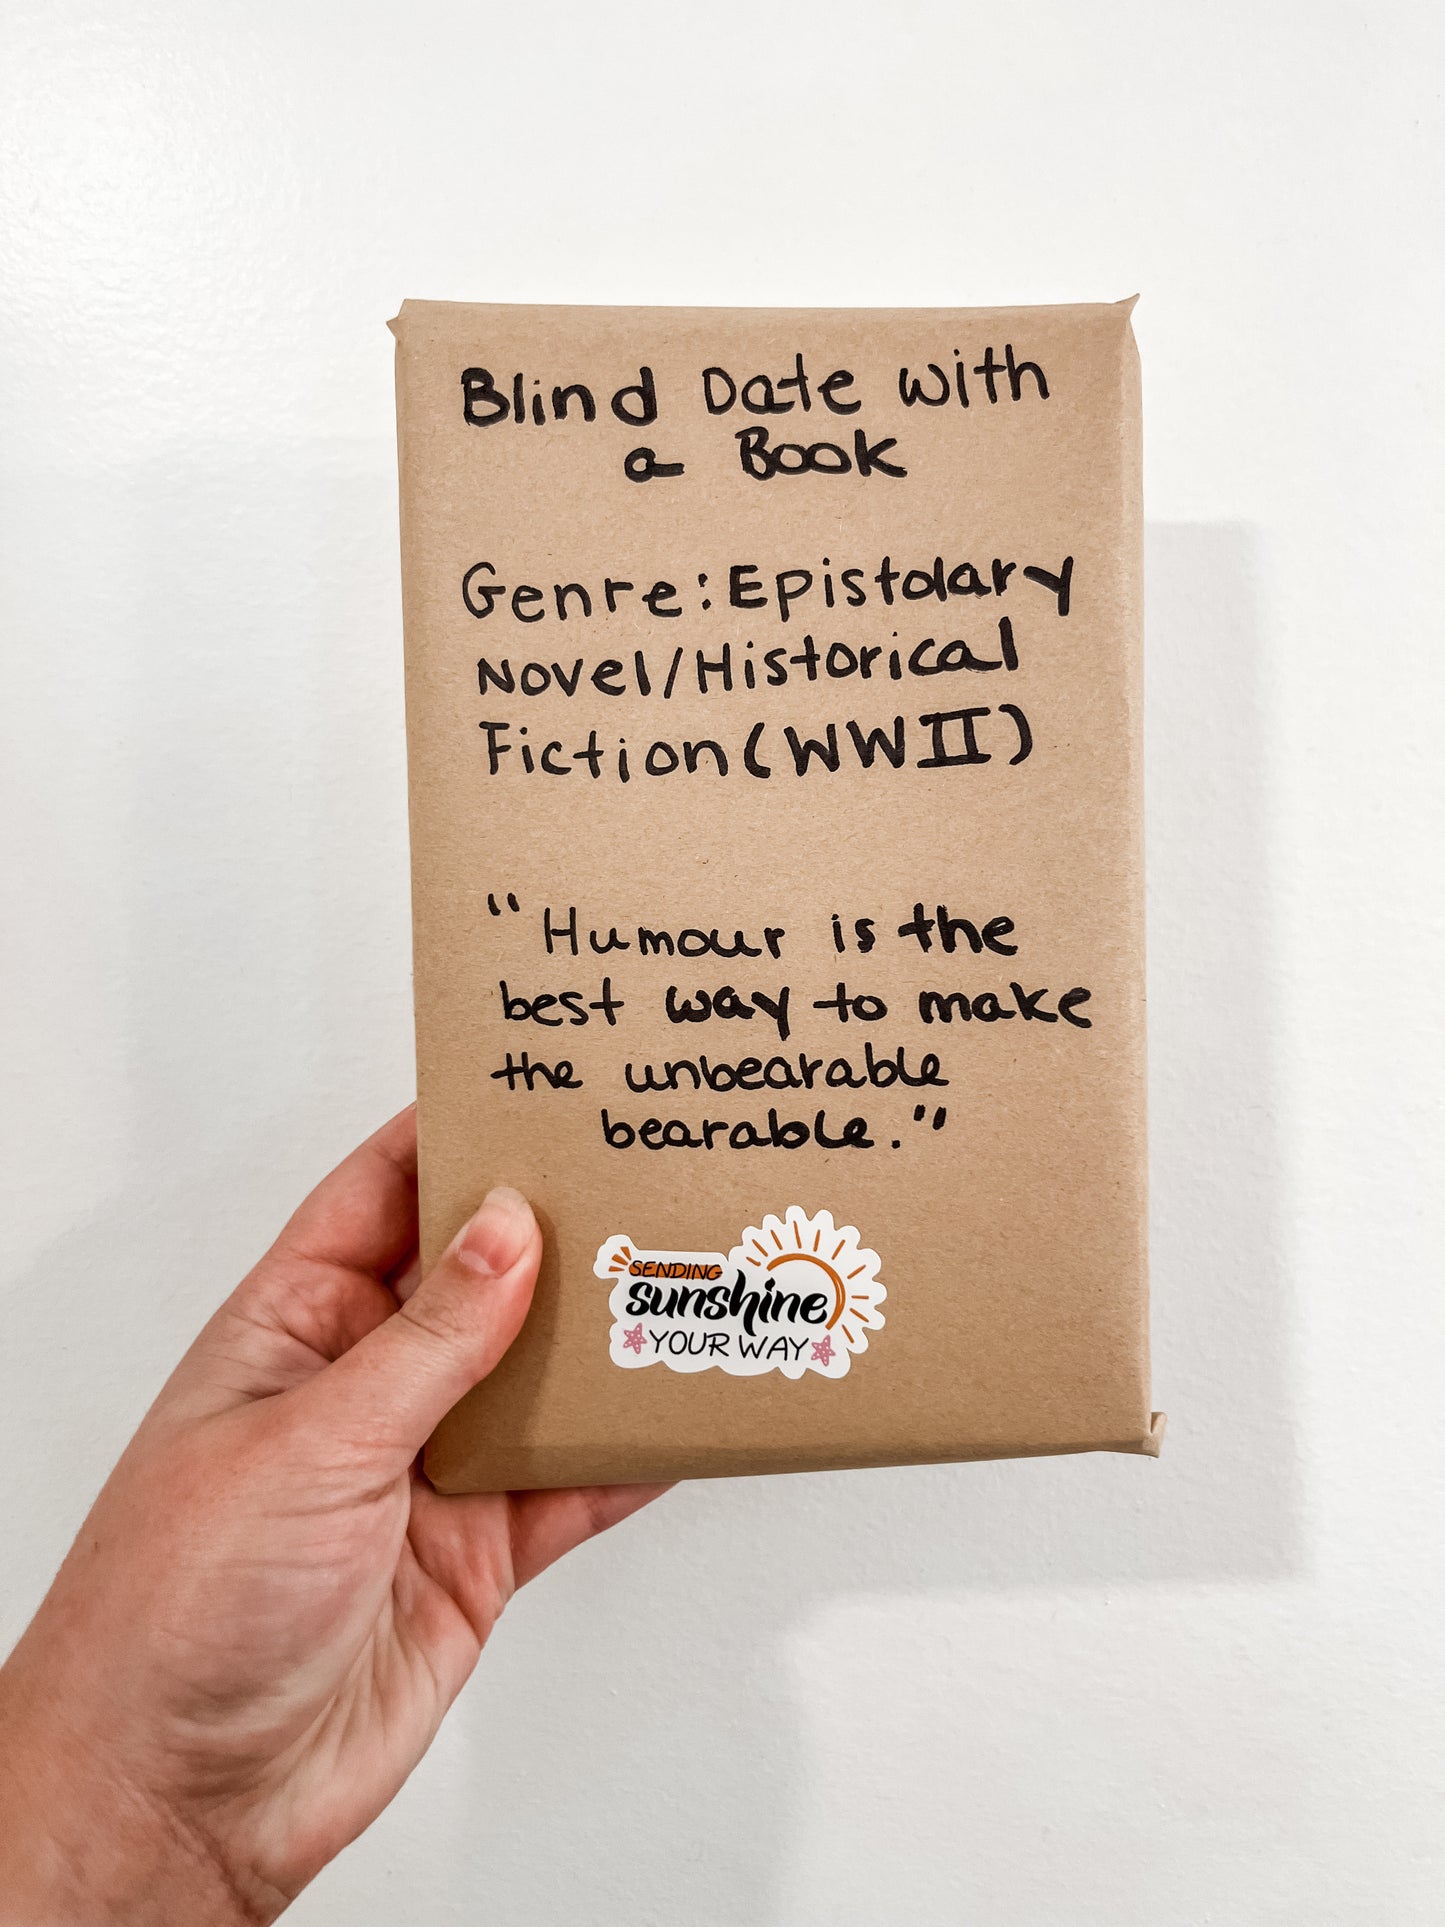 Blind Date with
a Book
Genre: Epistolary
Novel/Historical
Fiction (WWII)
"Humour is the
best way to make
the unbearable
bearable."
SENDING
sunshine
YOUR WAY